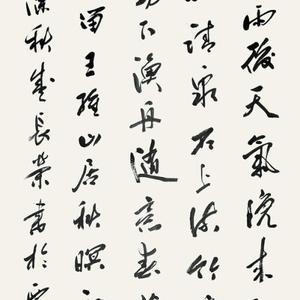 雨後天氣晚來
清泉石上流竹
下漁舟隨意春
留王維山居秋暝
秋長榮書於